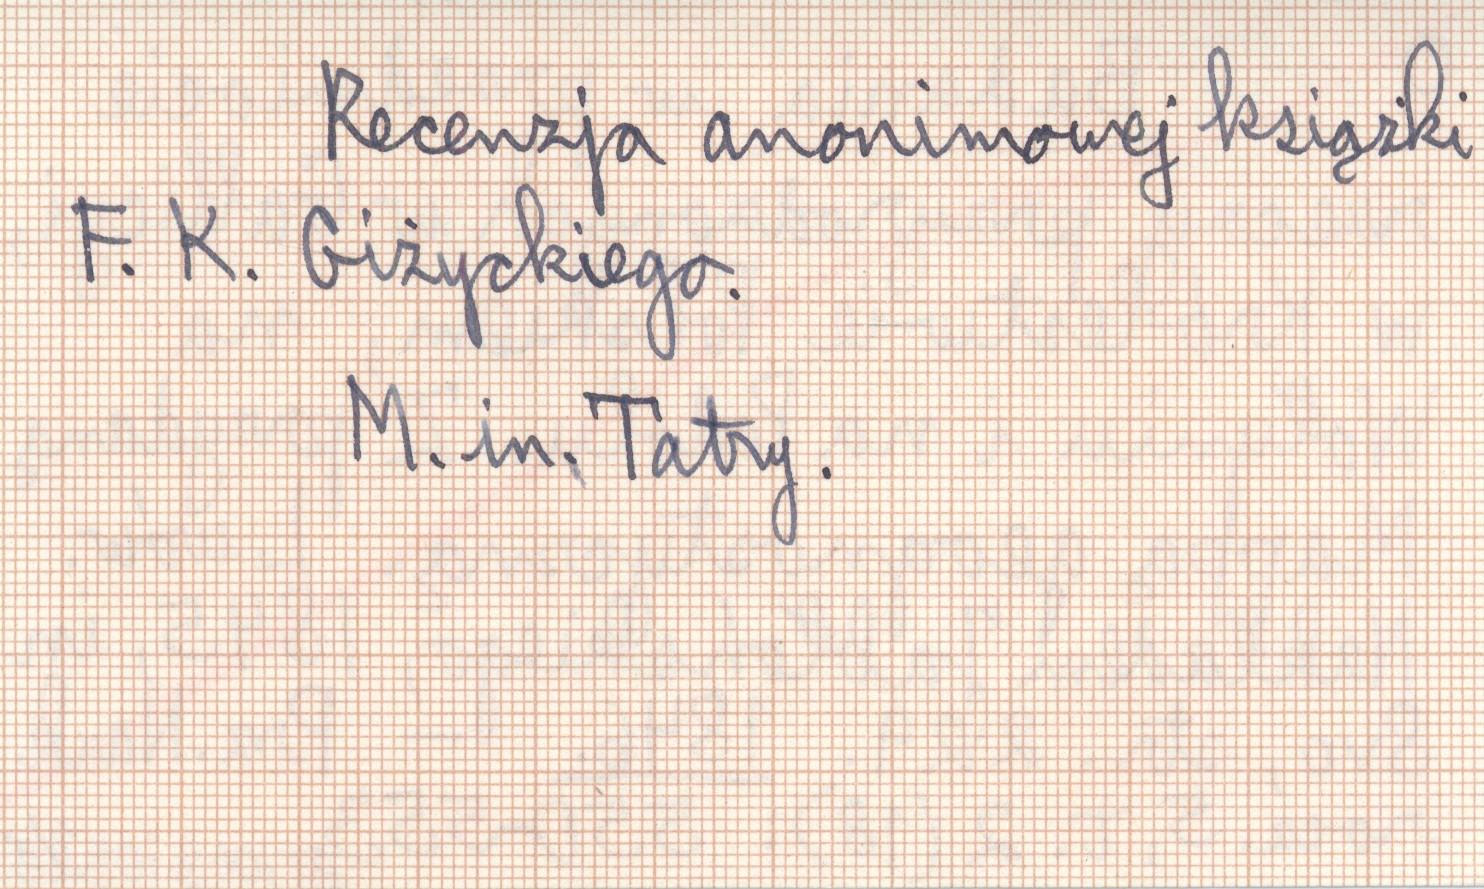 Recenzja anonimowej książki
F. K. Giżyckiego.
M. in. Tatry.